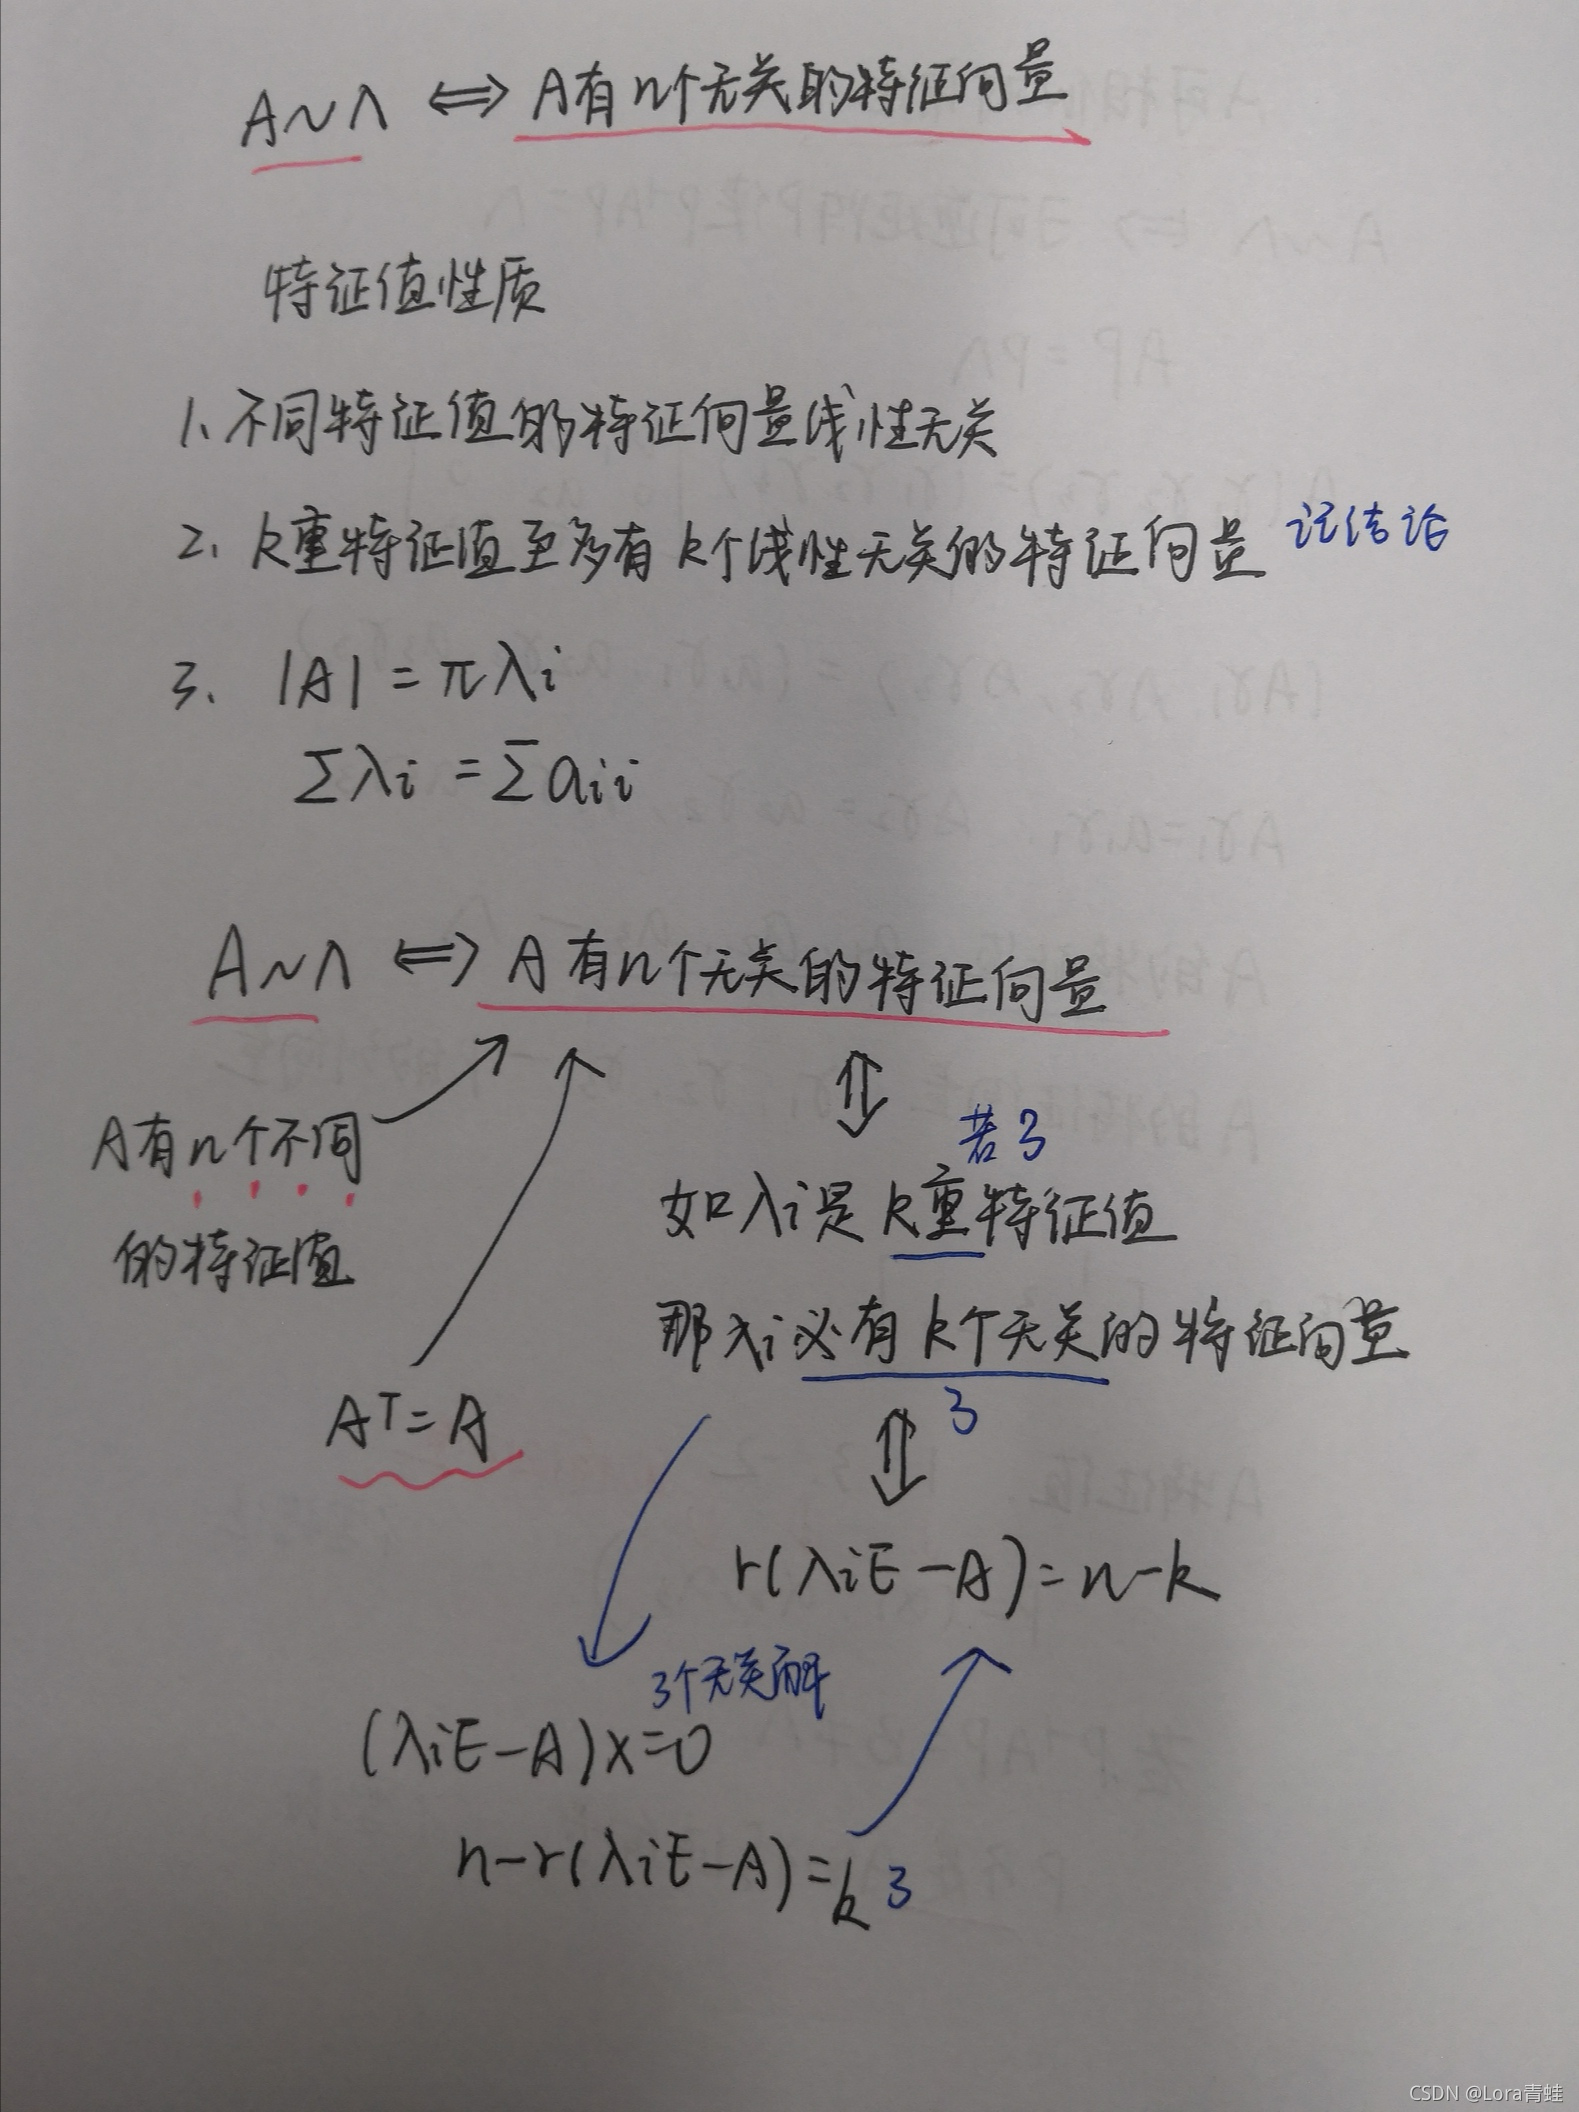 A~Λ ⇔ A有n个无关的特征向量
特征值性质
1、不同特征值的特征向量线性无关
2、k重特征值至多有k个线性无关的特征向量 记结论
3、|A| = πλi
Σλi = Σaii
A~Λ ⇔ A有n个无关的特征向量
A有n个不同
的特征值
若3
如λi是k重特征值
那λi必有k个无关的特征向量
3
Aᵀ=A
r(λiE-A)=n-k
3个无关解
(λiE-A)x=0
n-r(λiE-A)=k 3
CSDN @Lora青蛙